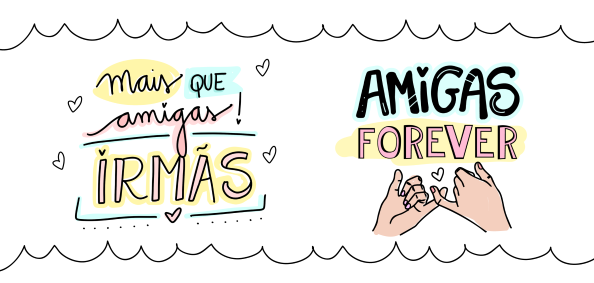 mais QUE
amigas!
IRMÃS
AMiGAS
FOREVER